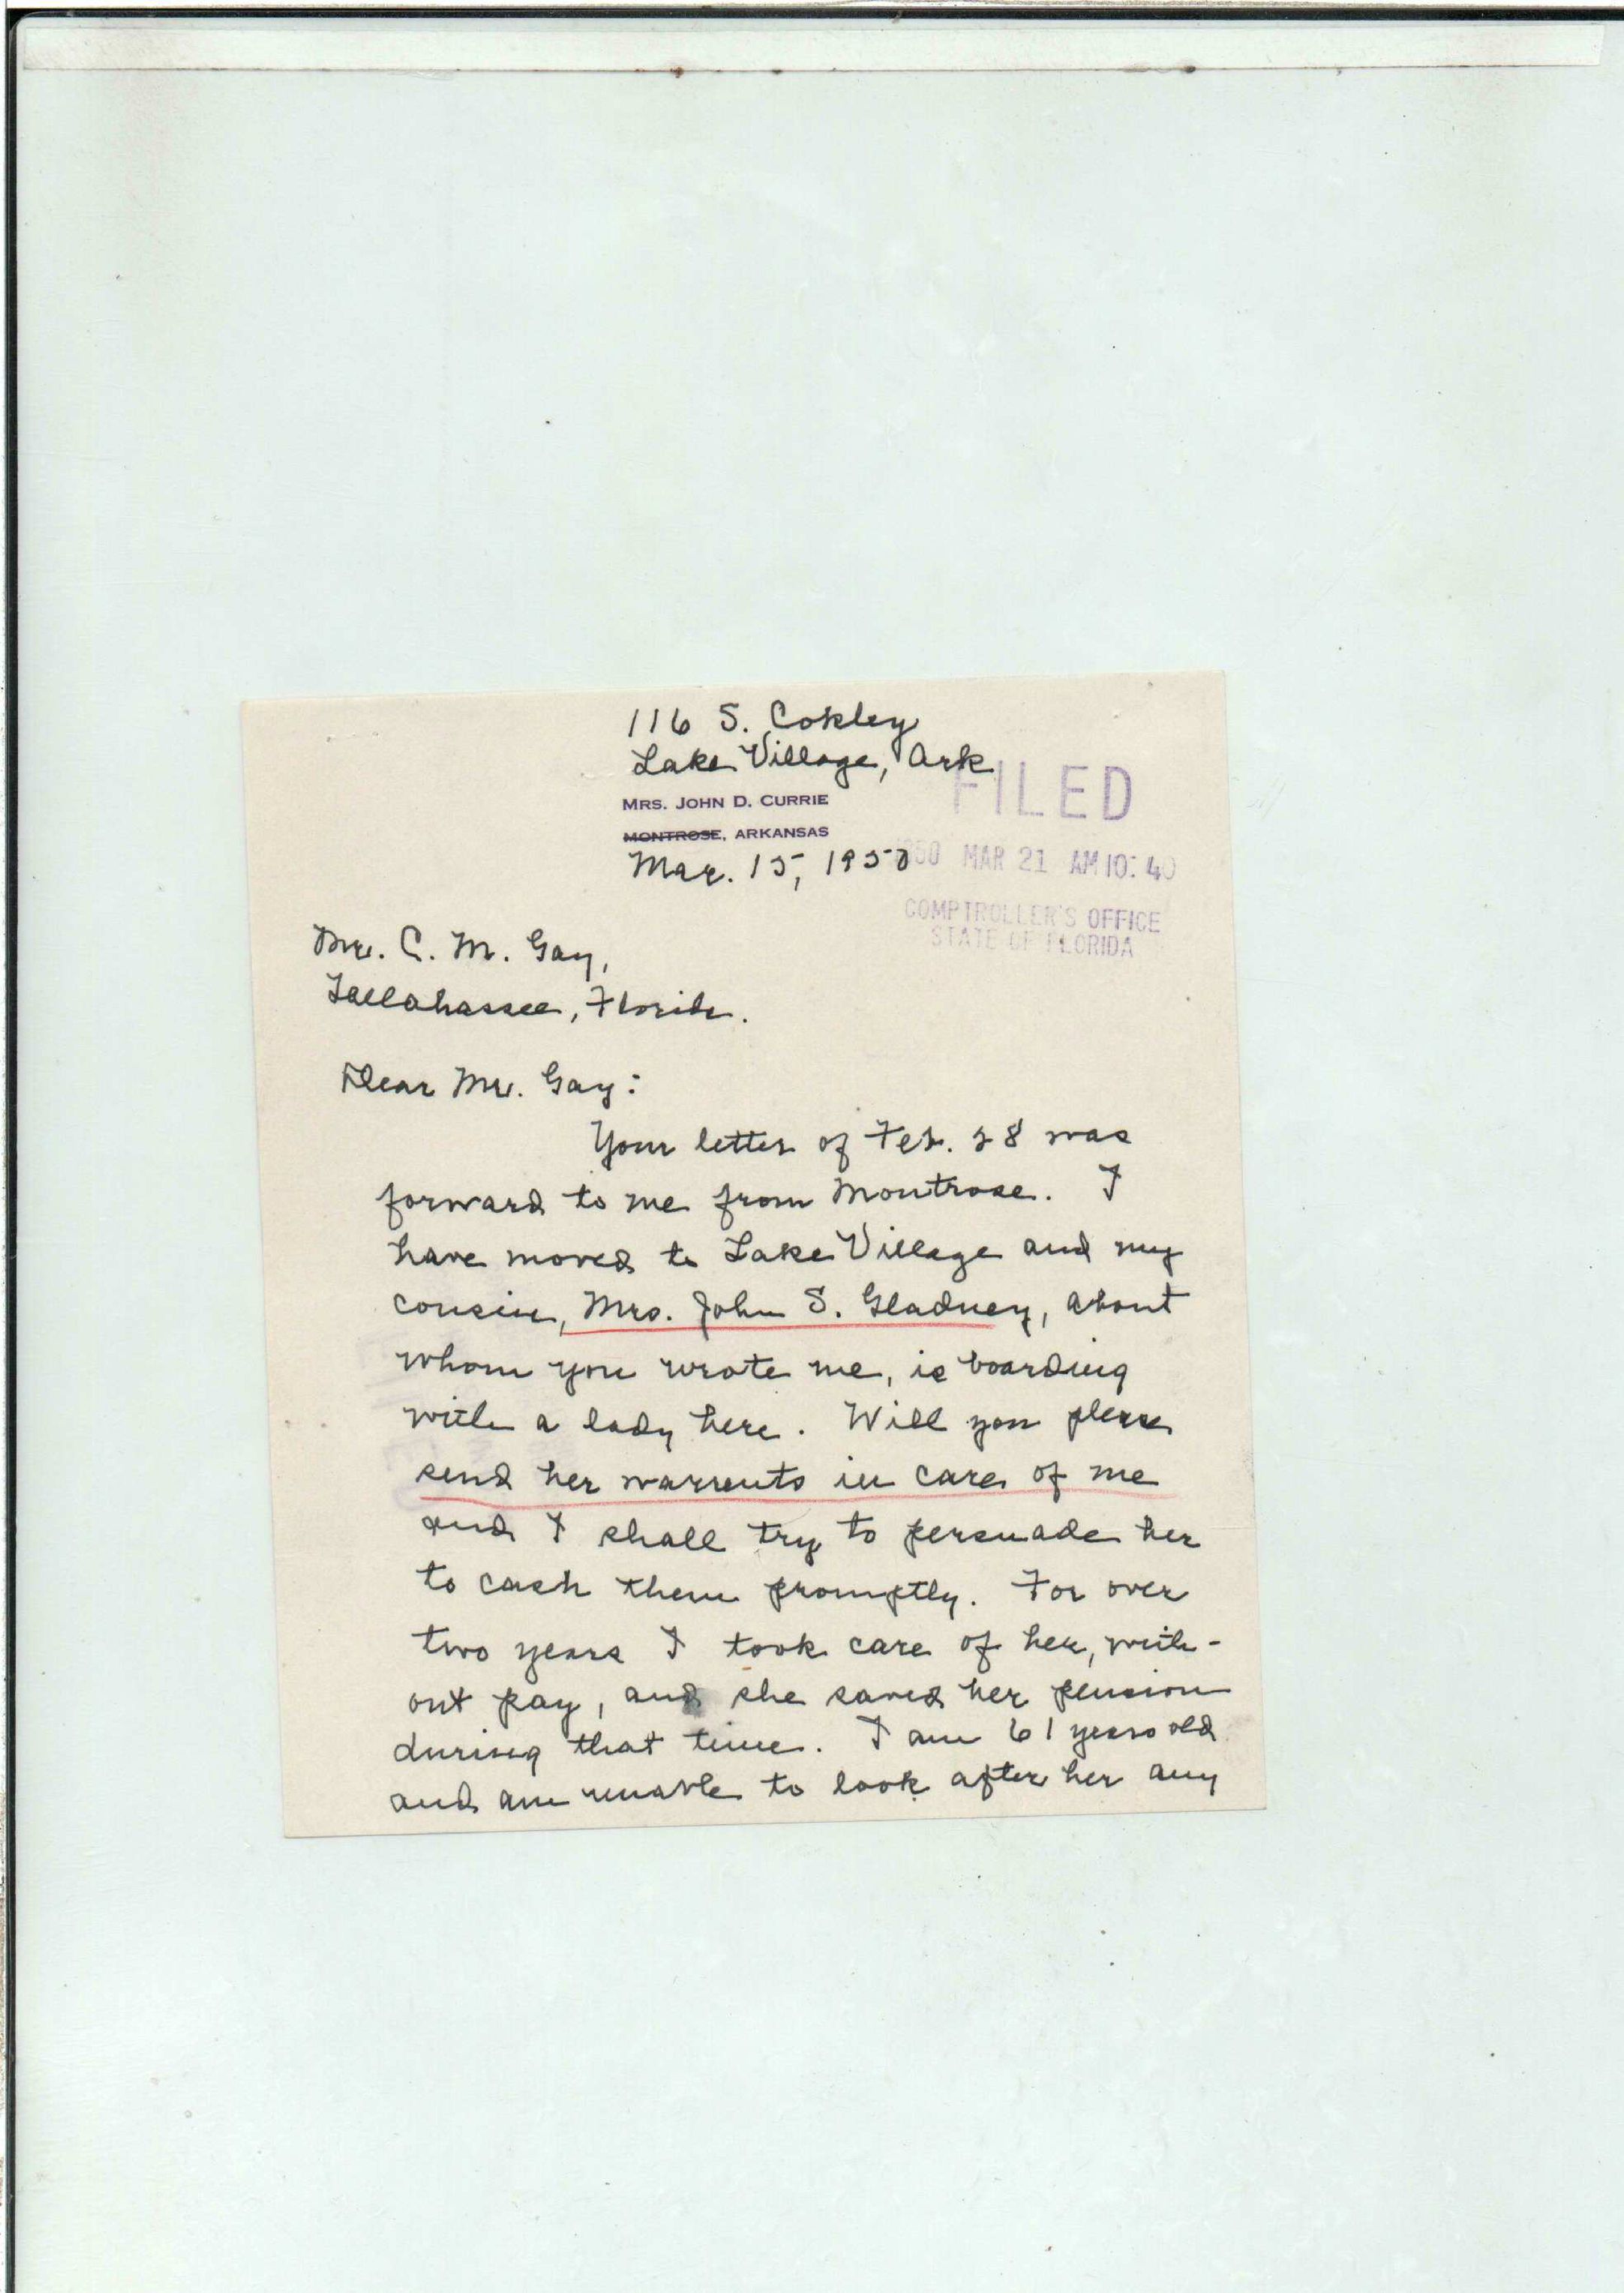 116 S. Cokley
Lake Village, Ark
FILED
MRS. JOHN D. CURRIE
MONTROSE, ARKANSAS
Mar. 15, 1950
1950 MAR 21 AM 10:40
COMPTROLLER'S OFFICE
STATE OF FLORIDA
Mr. C. M. Gay,
Tallahassee, Florida.
Dear Mr. Gay:
Your letter of Feb. 28 was
forward to me from Montrose. I
have moved to Lake Village and my
cousin, Mrs. John S. Gladney, about
whom you wrote me, is boarding
with a lady here. Will you please
send her warrents in care of me
and I shall try to persuade her
to cash them promptly. For over
two years I took care of her, with-
out pay, and she saved her pension
during that time. I am 61 years old
and am unable to look after her any